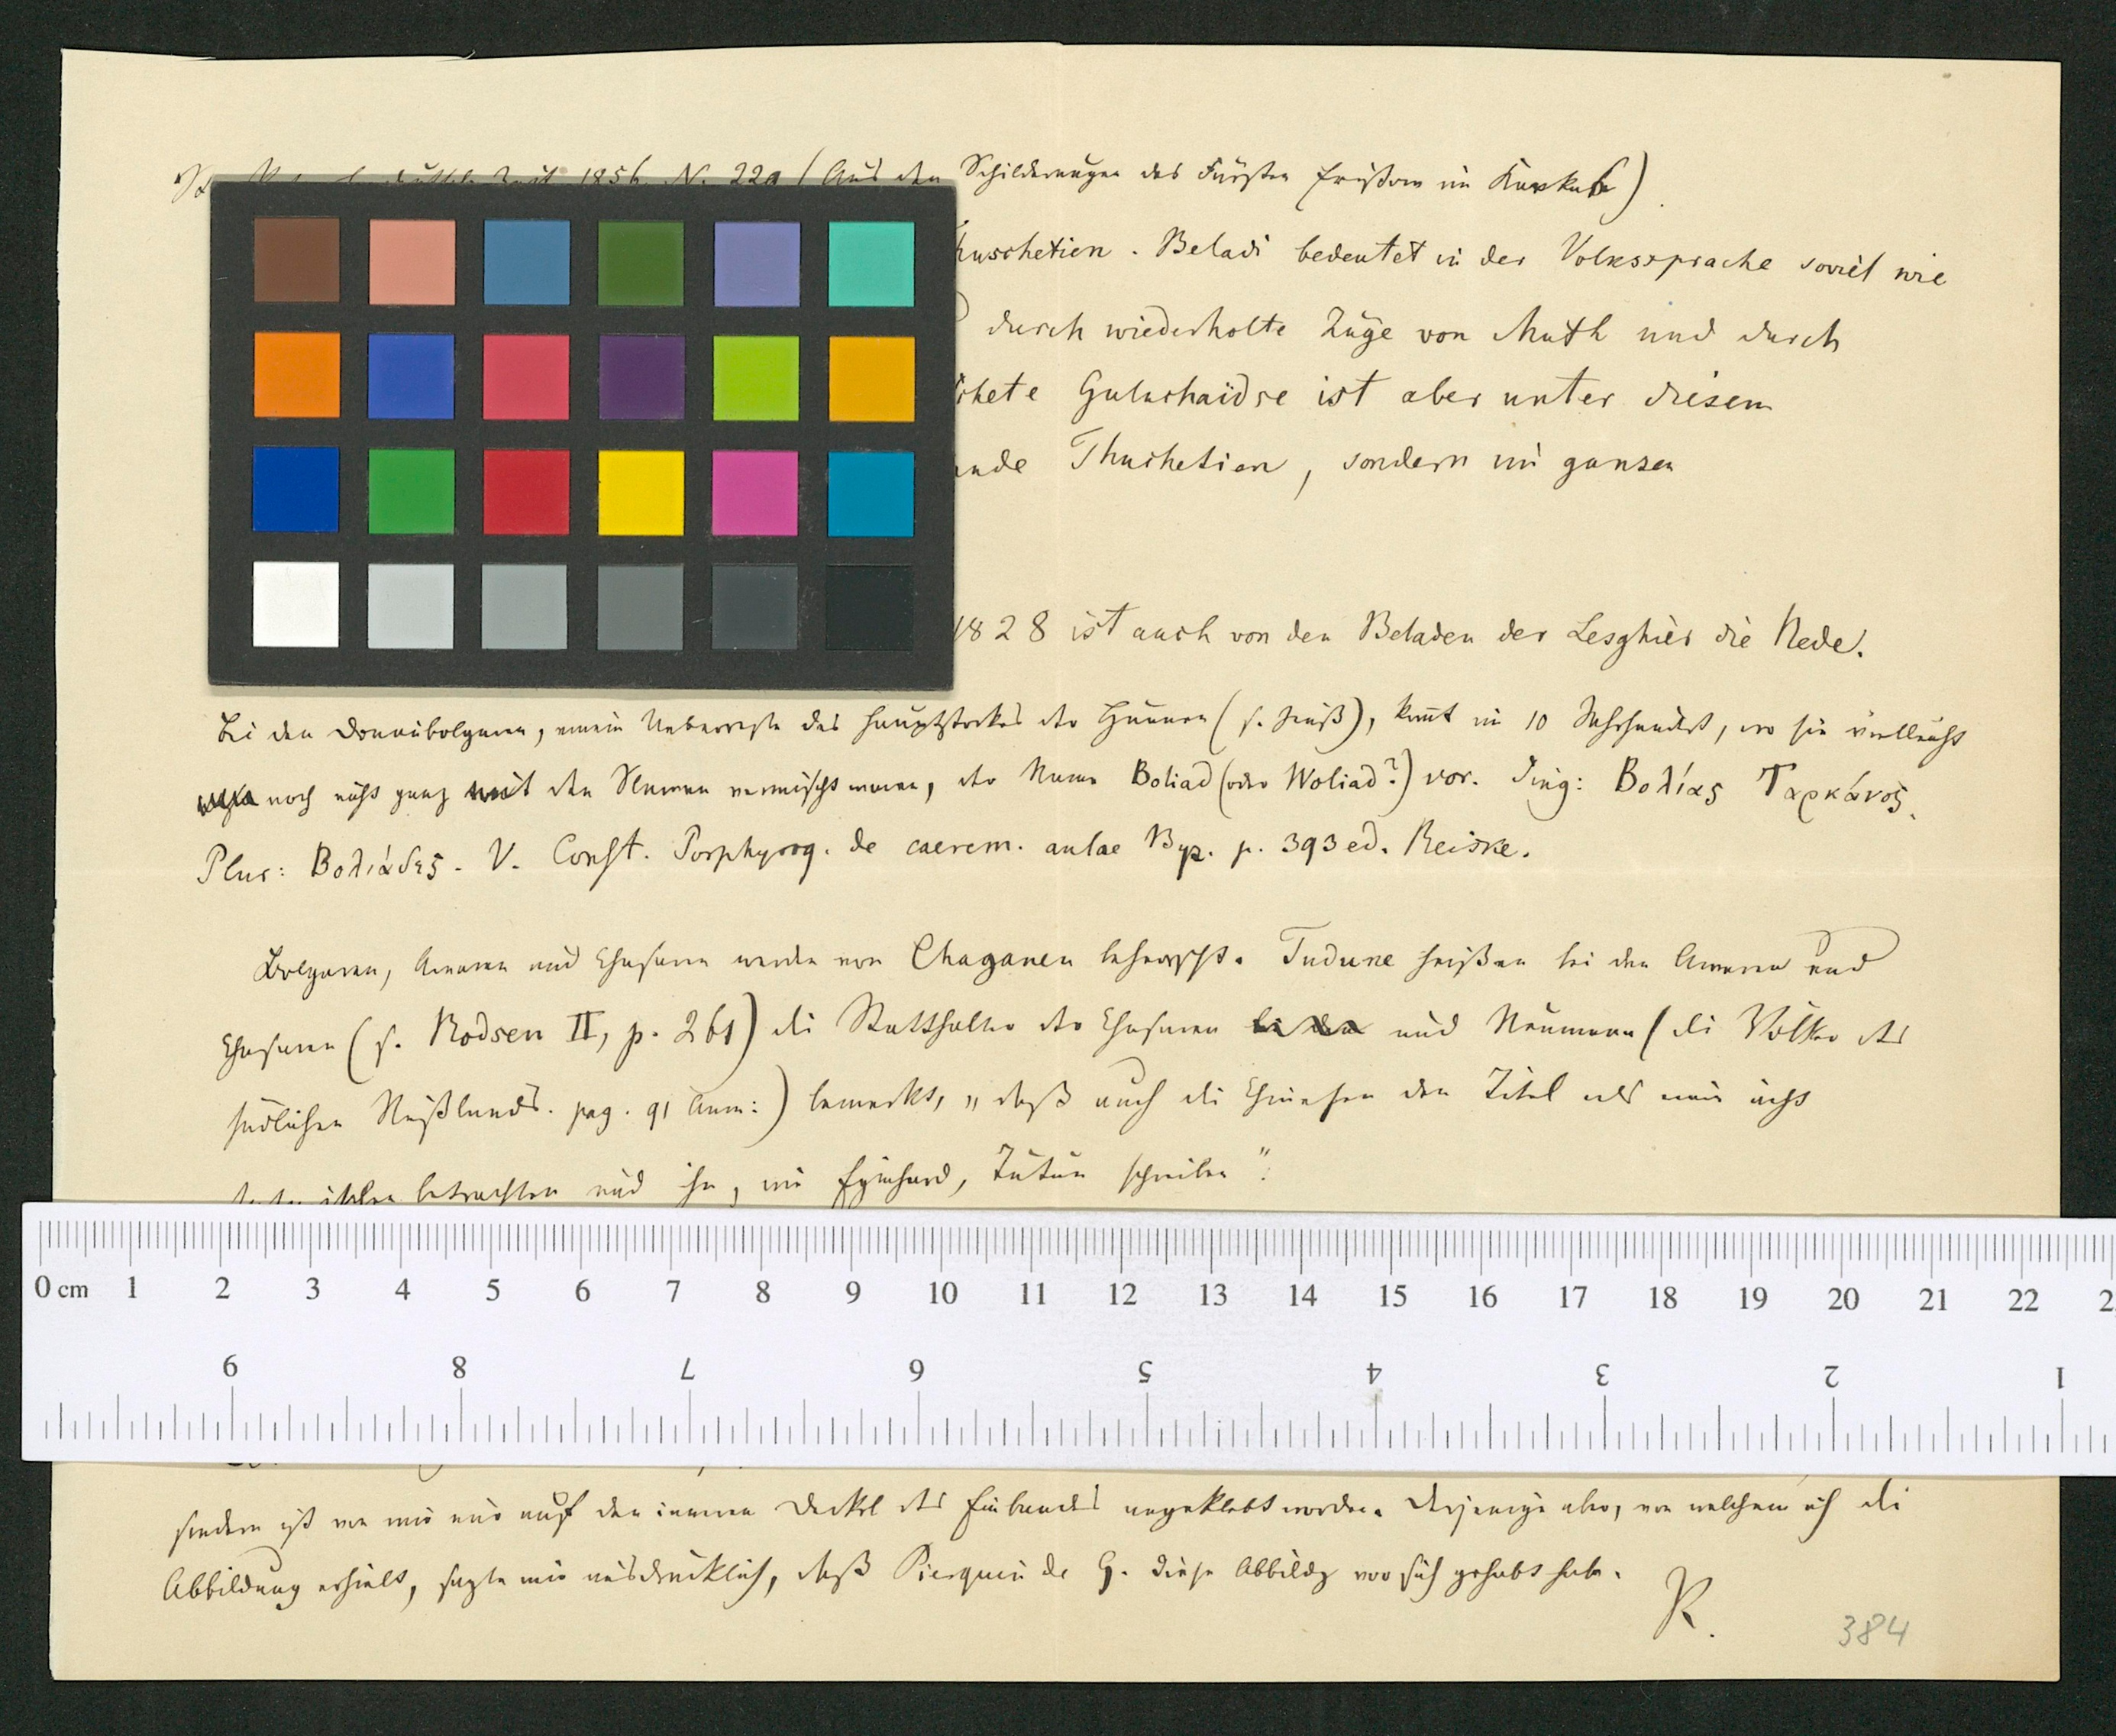 1856 N. 229 (Aus den Schilderungen des Fürsten Eristow im Kaukas)
huschetien. Beladi bedeutet in der Volkssprache soviel wie
durch wiederholte Züge von Muth und durch
chete Guluchaïdse ist aber unter diesem
ande Thuchetien, sondern im ganzen
1828 ist auch von den Beladen der Lesghier die Rede.
Bei den Donaubolgaren, einem Ueberreste des Hauptstockes der Hunnen (s. Zeuß), kom̄t im 10 Jahrhundert, wo sie vielleicht
noch nicht ganz mit den Slawen vermischt waren, der Name Boliad (oder Woliad?) vor. Sing: Βολίας Ταρκάνος.
Plur: Βολιάδες. V. Const. Porphyrog. de caerem. aulae Byz. p. 393 ed. Reiske.
Bolgaren, Awaren und Chasaren werden von Chaganen beherrscht. Tudune heißen bei den Awaren und
Chasaren (s. Rodsen II, p. 261) die Statthalter der Chasaren und Neumann (die Völker des
südlichen Rußlands. pag. 91 Anm:) bemerkt, „daß auch die Chinesen den Titel als einen acht
betrachten und ihn, wie Eginhard, Tutun schreiben“.
sondern ist von mir nur auf den inneren Deckel des Einbandes angeklebt worden. Derjenige aber, von welchem ich die
Abbildung erhielt, sagte mir ausdrücklich, daß Pierquin de G. diese Abbildg vor sich gehabt habe.
R.
384
0 cm 1 2 3 4 5 6 7 8 9 10 11 12 13 14 15 16 17 18 19 20 21 22 2
9 8 7 6 5 4 3 2 1